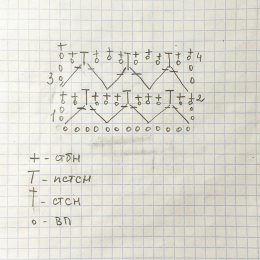 4
3
2
1
+ - сбн
T - пстсн
† - стсн
о - вп